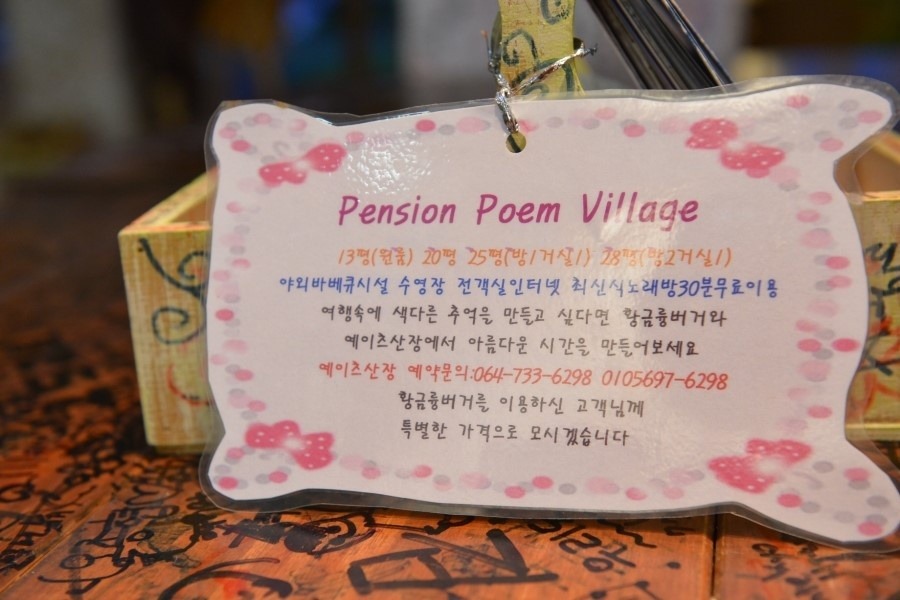 Pension Poem Village
13평(원룸) 20평 25평(방1거실1) 28평(방2거실1)
야외바베큐시설 수영장 전객실인터넷 최신식노래방30분무료이용
여행속에 색다른 추억을 만들고 싶다면 황금륭버거와
예이츠산장에서 아름다운 시간을 만들어보세요
예이츠산장 예약문의:064-733-6298 0105697-6298
황금륭버거를 이용하신 고객님께
특별한 가격으로 모시겠습니다